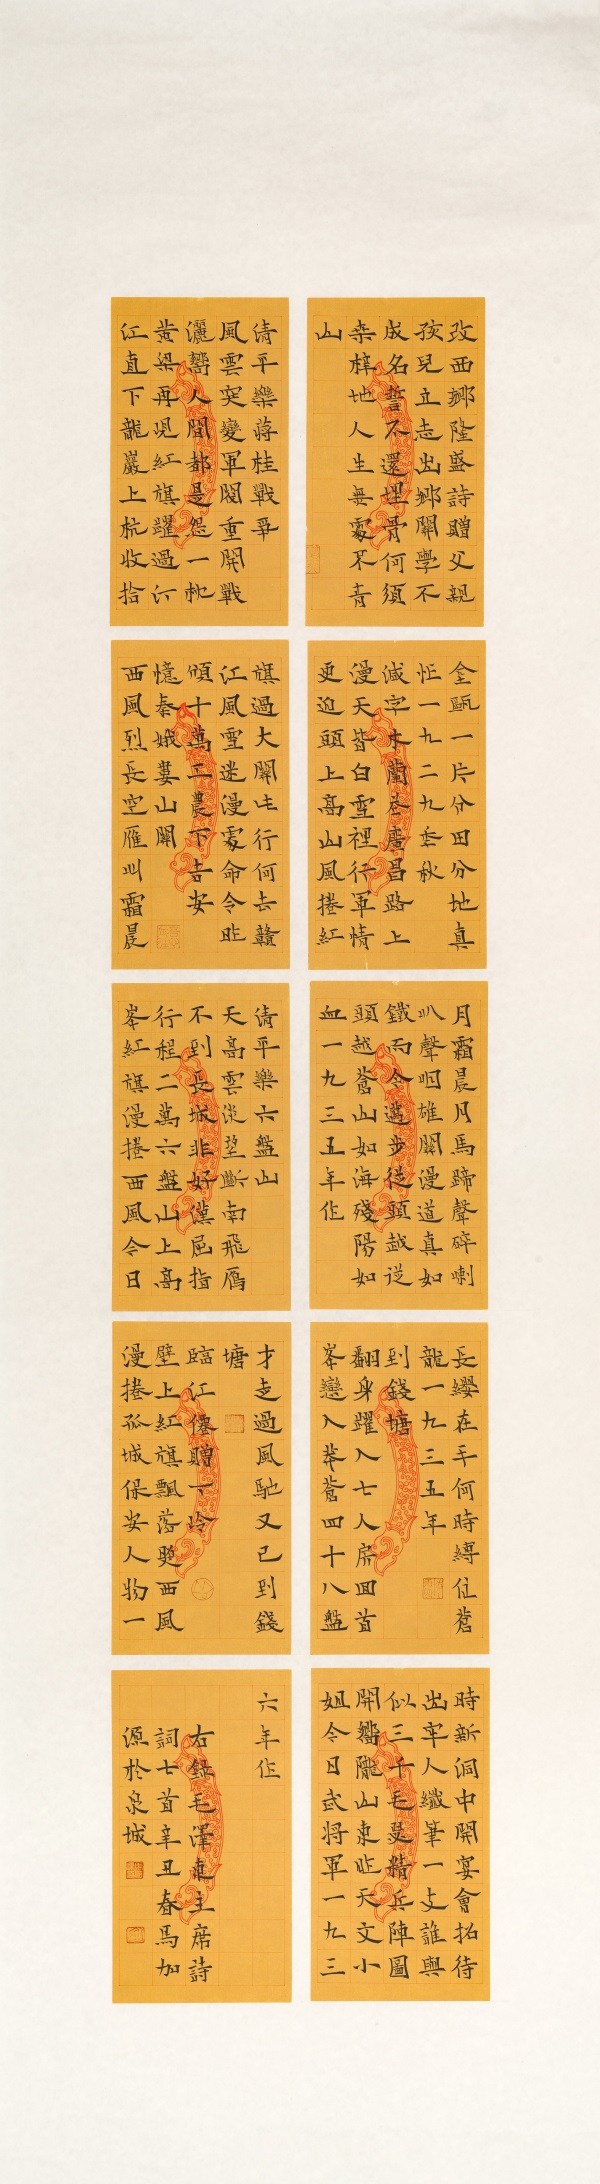 改西鄉隆盛詩贈父親
孩兒立志出鄉關學不
成名誓不還埋骨何須
桑梓地人生無處不青
山
清平樂蔣桂戰爭
風雲突變軍閥重開戰
灑嚮人間都是怨一枕
黃粱再現紅旗躍過汀
江直下龍巖上杭收拾
金甌一片分田分地真
忙一九二九年秋
減字木蘭花廣昌路上
漫天皆白雪裡行軍情
更迫頭上高山風捲紅
旗過大關此行何去贛
江風雪迷漫處命令昨
頒十萬工農下吉安
憶秦娥婁山關
西風烈長空雁叫霜晨
月霜晨月馬蹄聲碎喇
叭聲咽雄關漫道真如
鐵而今邁步從頭越從
頭越蒼山如海殘陽如
血一九三五年作
清平樂六盤山
天高雲淡望斷南飛雁
不到長城非好漢屈指
行程二萬六盤山上高
峯紅旗漫捲西風今日
長纓在手何時縛住蒼
龍一九三五年
到錢塘
翻身躍入七人房回首
峯巒入莽蒼四十八盤
才走過風馳又已到錢
塘
臨江僊贈丁玲
壁上紅旗飄落照西風
漫捲孤城保安人物一
時新洞中開宴會招待
出牢人纖筆一支誰與
似三千毛瑟精兵陣圖
開嚮隴山東昨天文小
姐今日武將軍一九三
六年作
右錄毛澤東主席詩
詞七首辛丑春馬加
源於泉城